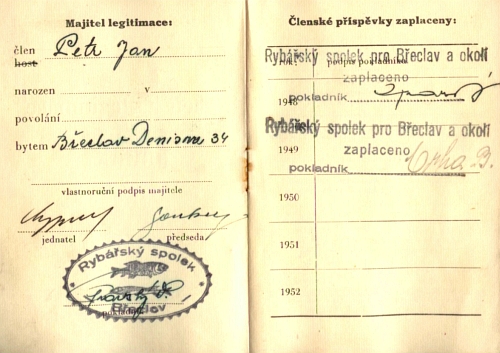 Majitel legitimace:
člen Petr Jan
host
narozen v
povolání
bytem Břeclav Denisova 34
vlastnoruční podpis majitele
jednatel předseda
Rybářský spolek
Břeclav
pokladník
Členské příspěvky zaplaceny:
Rybářský spolek pro Břeclav a okolí
zaplaceno
1948 pokladník
Rybářský spolek pro Břeclav a okolí
1949 zaplaceno
pokladník Crha B.
1950
1951
1952